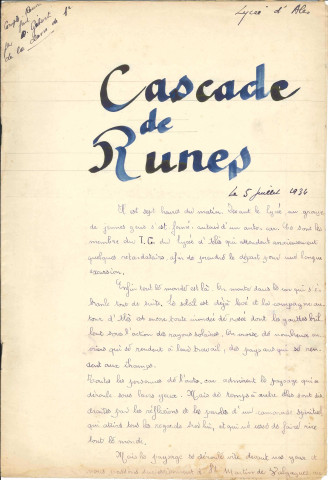 Compte rendu
fait
par
de la classe de 1e
Lycée d'Alès
Cascade
de
Runes
Le 5 juillet 1936
Il est sept heures du matin devant le lycée un groupe
de jeunes gens s'est formé autour d'un autocar. Ce sont les
membres du T.C. du lycée d'Alès qui attendent anxieusement
quelques retardataires, afin de prendre le départ pour une longue
excursion.
Enfin tout le monde est là. On monte dans le car qui s'é-
branle tout de suite. Le soleil est déjà levé et la campagne au-
tour d'Alès est encore toute inondée de rosée dont les gouttes bril-
lent sous l'action des rayons solaires. On croise de nombreux ou-
vriers qui se rendent à leur travail, des paysans qui se ren-
dent aux champs.
Toutes les personnes de l'auto, ou admirent le paysage qui se
déroule sous leurs yeux. Mais de temps à autre elles sont dis-
traites par les réflexions et les paroles d'un camarade spirituel
qui attire tous les regards sur lui, et qui ne cesse de faire rire
tout le monde.
Mais le paysage se déroule vite devant nos yeux et
nous St Martin de Valgalgues